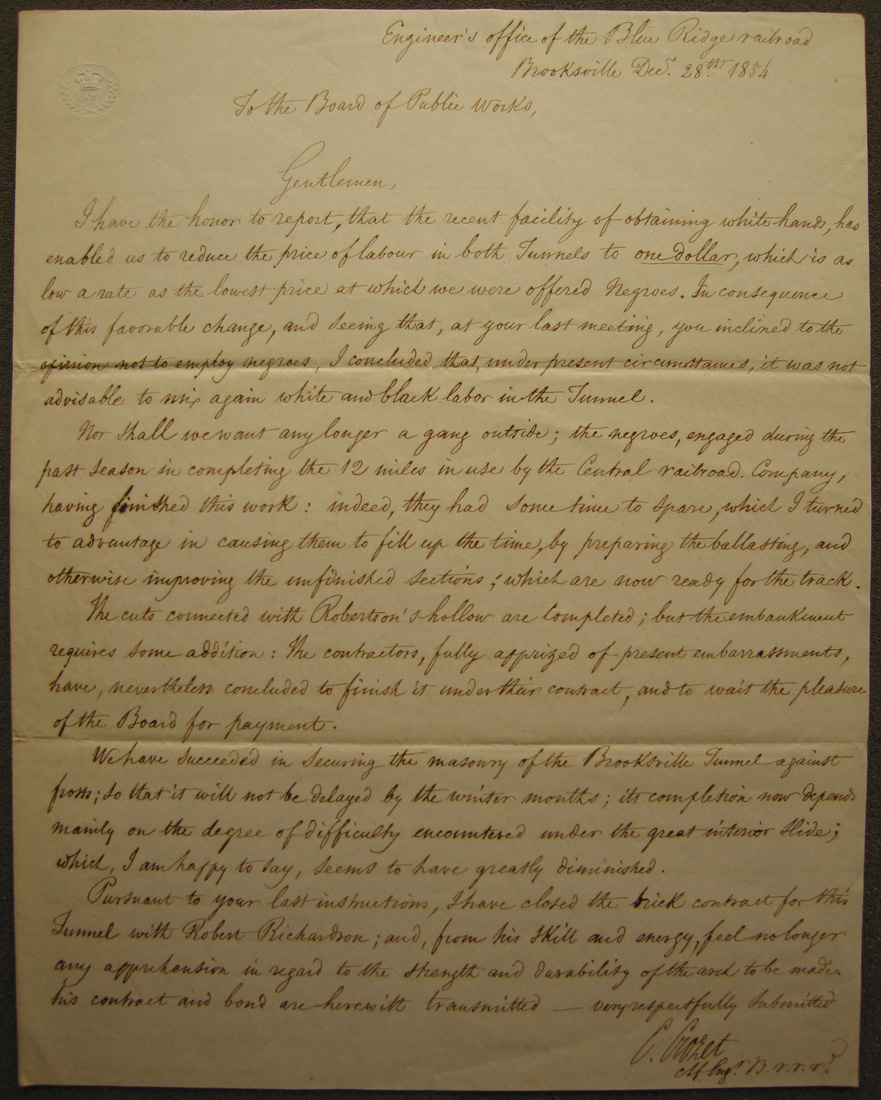 Engineer's office of the Blue Ridge railroad
Brooksville Decr. 28th 1854
To the Board of Public Works,
Gentlemen,
I have the honor to report, that the recent facility of obtaining white hands, has
enabled us to reduce the price of labour in both Tunnels to one dollar, which is as
low a rate as the lowest price at which we were offered Negroes. In consequence
of this favorable change, and seeing that, at your last meeting, you inclined to the
opinion not to employ negroes, I concluded that, under present circumstances, it was not
advisable to mix again white and black labor in the Tunnel.
Nor shall we want any longer a gang outside; the negroes, engaged during the
past season in completing the 12 miles in use by the Central railroad Company,
having finished this work: indeed, they had some time to spare, which I turned
to advantage in causing them to fill up the time, by preparing the ballasting, and
otherwise improving the unfinished sections; which are now ready for the track.
The cuts connected with Robertson's hollow are completed; but the embankment
requires some addition: The contractors, fully apprized of present embarrassments,
have, nevertheless concluded to finish it under their contract, and to wait the pleasure
of the Board for payment.
We have succeeded in securing the masonry of the Brooksville Tunnel against
frosts; so that it will not be delayed by the winter months; its completion now depends
mainly on the degree of difficulty encountered under the great interior slide;
which, I am happy to say, seems to have greatly diminished.
Pursuant to your last instructions, I have closed the brick contract for this
Tunnel with Robert Richardson; and, from his skill and energy, feel no longer
any apprehension in regard to the strength and durability of the arch to be made.
his contract and bond are herewith transmitted — very respectfully submitted
C. Crozet
Engr. B.r.r.r.